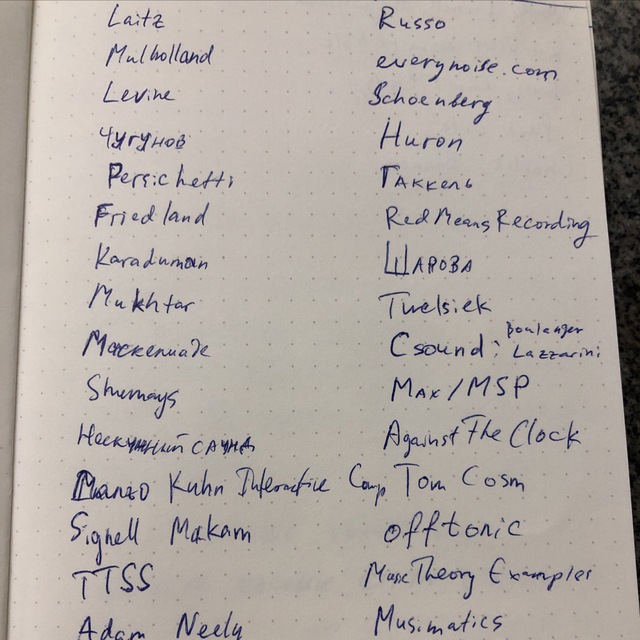 Laitz
Mulholland
Levine
Чугунов
Persichetti
Friedland
Karaduman
Mukhtar
Shumays
Нескучный саунд
Manzo Kuhn Interactive Comp
Signell Makam
TTSS
Adam Neely
Russo
everynoise.com
Schoenberg
Huron
Таккель
Red Means Recording
Шарова
Twelsiek
Csound: Boulanger
Lazzarini
Max/MSP
Against The Clock
Tom Cosm
offtonic
Music Theory Examples
Musimatics